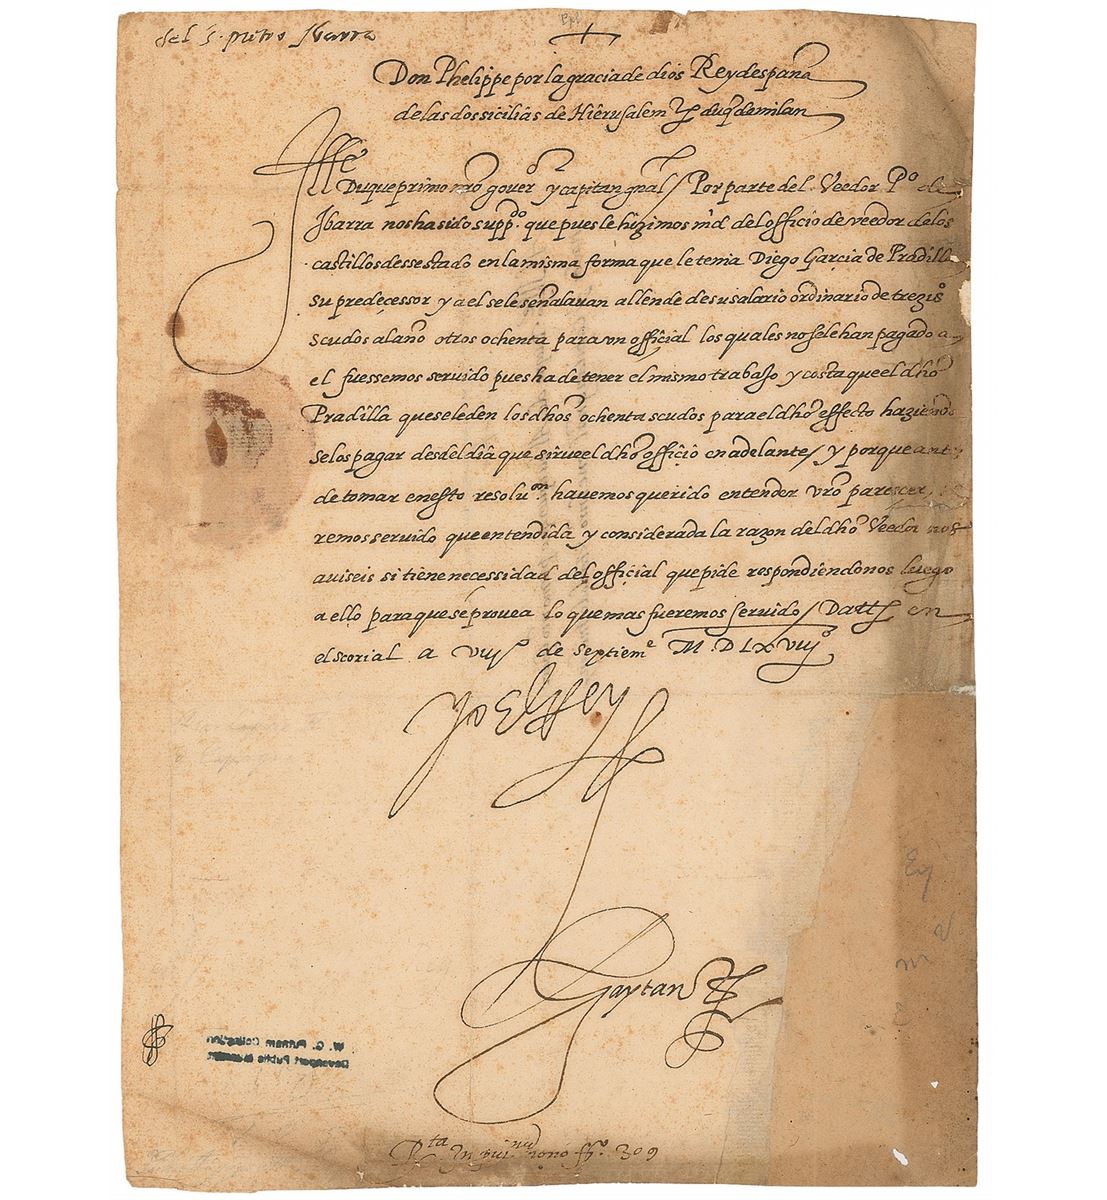 del S. pietro Ibarra
Don Phelippe por la gracia de dios Rey despaña
de las dos sicilias de Hierusalem &c duq̃ de milan
Ill.e Duque primo nr̃o gouer.or y capitan gñal / Por parte del Veedor P.o de
Ibarra nos ha sido supp.do que pues le hizimos m̃d del officio de veedor de los
castillos desse estado en la misma forma que le tenia Diego Garcia de Pradilla
su predeçessor y a el se le señalauan allende de su salario ordinario de trezi.os
scudos al año otros ochenta para vn official los quales no se le han pagado a
el fuessemos seruido pues ha de tener el mismo trabajo y costa que el dho
Pradilla que se le den los dhos ochenta scudos para el dho effecto haziendo
selos pagar desde el dia que sirue el dho officio en adelante / y porque antes
de tomar en esto resolu.on hauemos querido entender vr̃o paresçer,
remos seruido que entendida y considerada la razon del dho Veedor nos
auiseis si tiene necessidad del official que pide respondiendo nos luego
a ello para que se prouea lo que mas fueremos seruido / Datt. en
el scorial a viij.o de septiem.e M.D.LXviij.o
Gaytan
R.ta 309
W. C. Putnam Collection
Davenport Public Museum